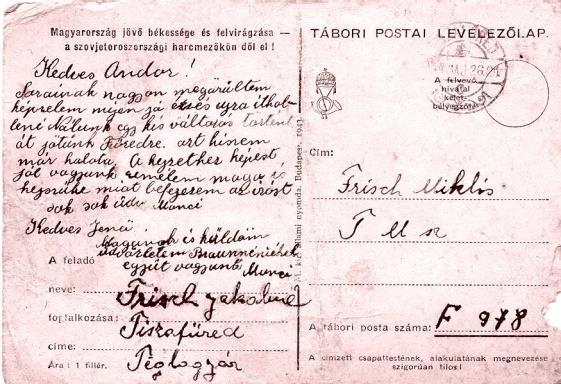 Magyarország jövő békessége és felvirágzása —
a szovjetoroszországi harcmezőkön dől el !
Kedves Andor !
Sorainak nagyon megörültem
képzelem mijen jó
Nálunk egy kis változás történt
át jötünk Füredre. azt hiszem
már halota. A
jól vagyunk remélem maga is
miat befejezem az írást
sok sok üdv Manci
Kedves Jenő !
Magának is küldöm
üdvözletem
együt vagyunk Manci
A feladó
neve: Frisch Jakabné
foglalkozása: Tiszafüred
címe: Téglagyár
Ára : 1 fillér.
M. kir. állami nyomda. Budapest, 1943.
TÁBORI POSTAI LEVELEZŐLAP.
A felvevő
hivatal
kelet-
bélyegzője
Cím:
Frisch Miklós
A tábori posta száma: F 978
A címzett csapattestének, alakulatának megnevezése
szigorúan tilos !